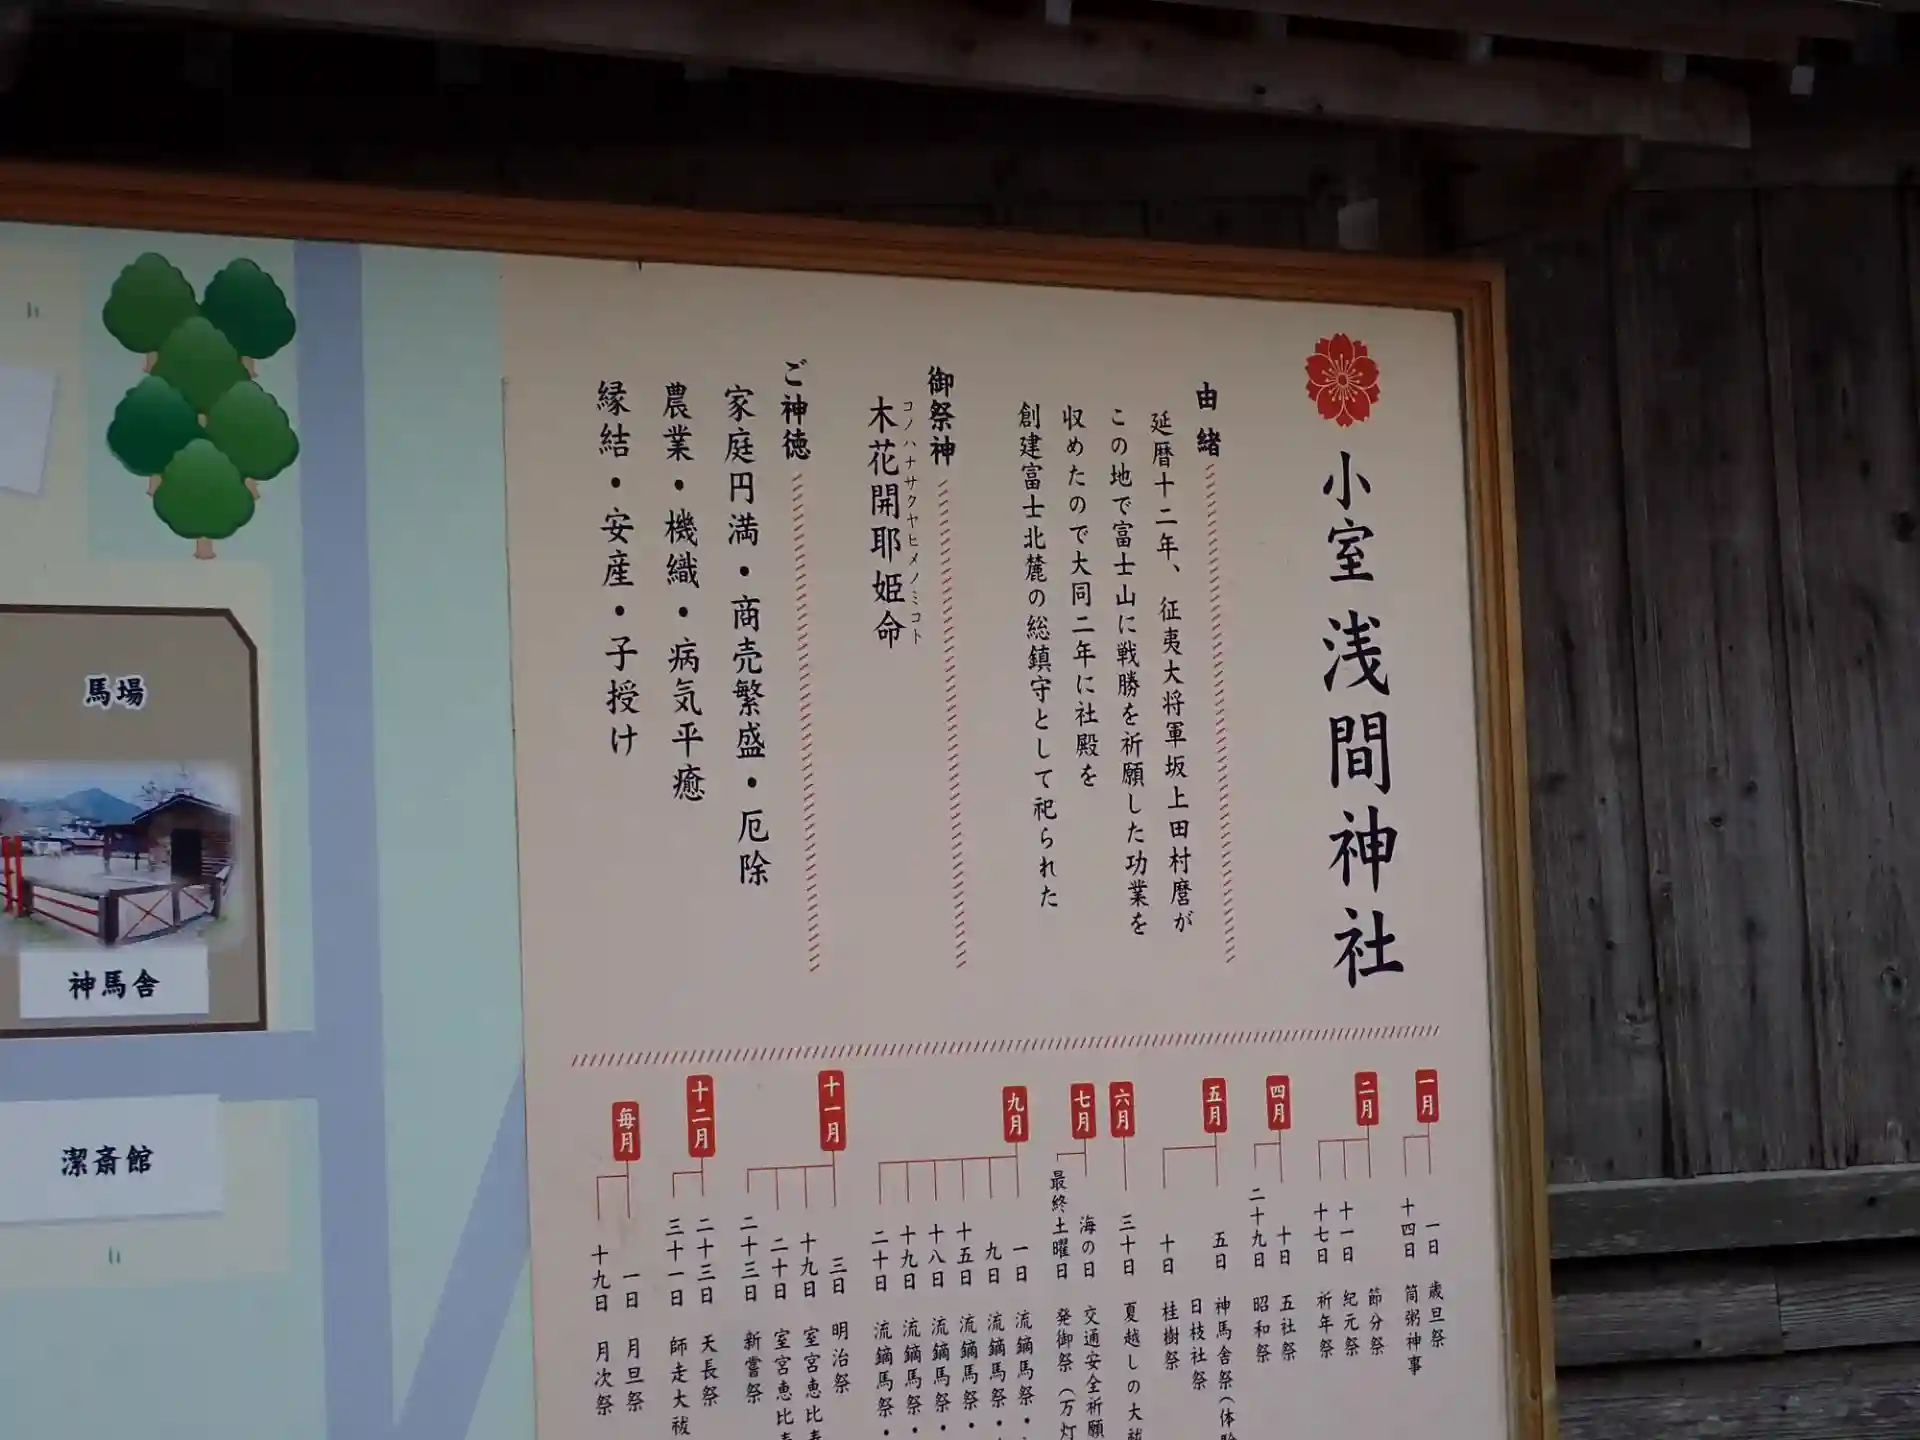 小室浅間神社
由緒
延暦十二年、征夷大将軍坂上田村麿が
この地で富士山に戦勝を祈願した功業を
収めたので大同二年に社殿を
創建富士北麓の総鎮守として祀られた
御祭神
コノハナサクヤヒメノミコト
木花開耶姫命
ご神徳
家庭円満・商売繁盛・厄除
農業・機織・病気平癒
縁結・安産・子授け
一月
一日 歳旦祭
十四日 筒粥神事
二月
節分祭
十一日 紀元祭
十七日 祈年祭
四月
十日 五社祭
二十九日 昭和祭
五月
五日 神馬舎祭(体
日枝社祭
十日 桂樹祭
六月
三十日 夏越しの大祓
七月
海の日 交通安全祈願
最終土曜日 発御祭(万灯
九月
一日 流鏑馬祭・
九日 流鏑馬祭・
十五日 流鏑馬祭・
十八日 流鏑馬祭・
十九日 流鏑馬祭・
二十日 流鏑馬祭・
十一月
三日 明治祭
十九日 室宮恵比
二十日 室宮恵比
二十三日 新嘗祭
十二月
二十三日 天長祭
三十一日 師走大祓
毎月
一日 月旦祭
十九日 月次祭
馬場
神馬舎
潔斎館